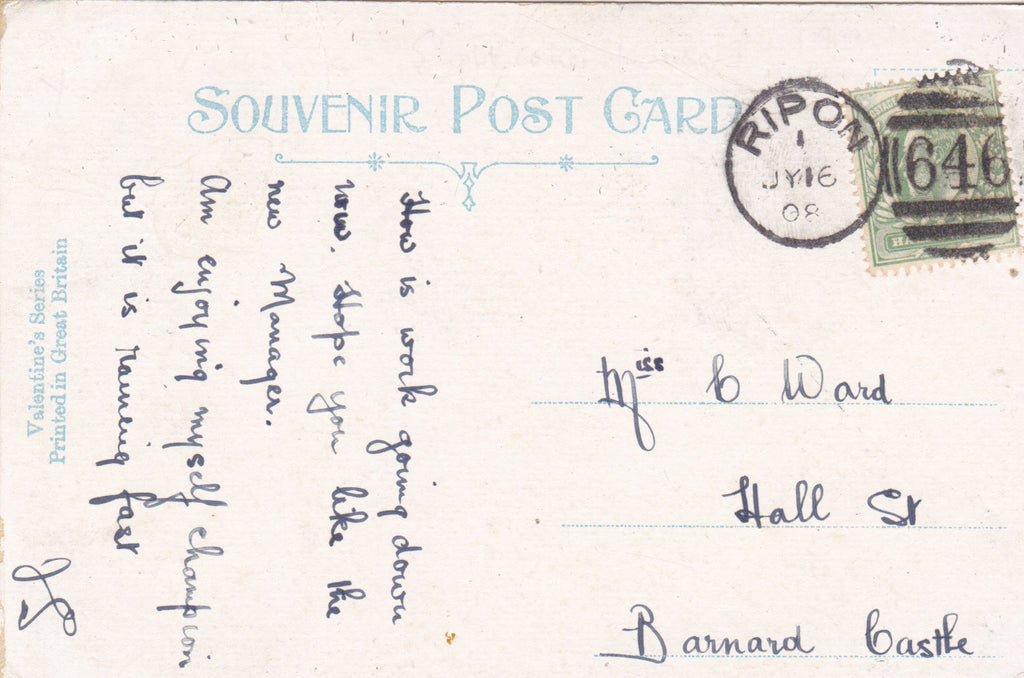 SOUVENIR POST CARD
RIPON
1
JY 16
08
646
How is work going down
now. Hope you like the
new Manager.
Am enjoying myself champion
but it is raining fast
Miss C Ward
Hall St
Barnard Castle
Valentine's Series
Printed in Great Britain